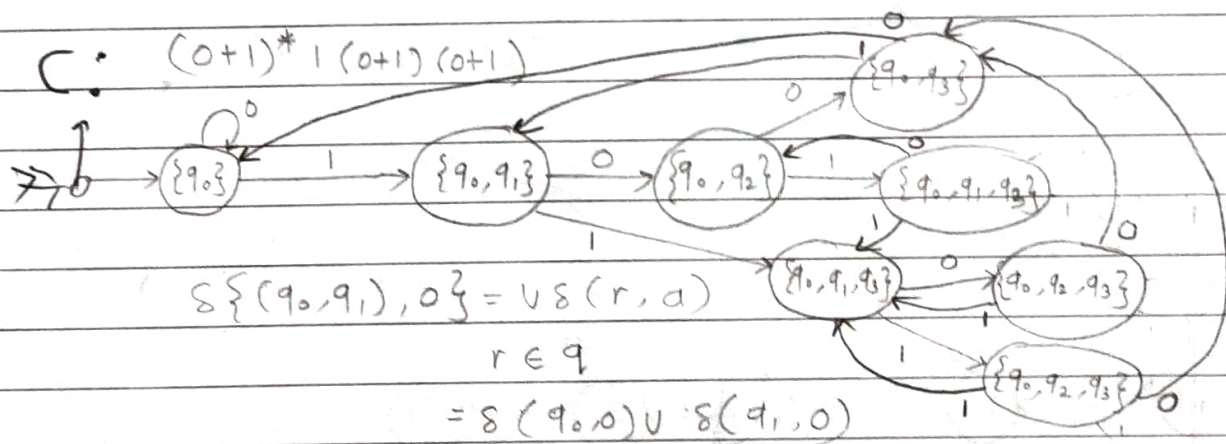 C: (0+1)* 1 (0+1) (0+1)
0
1
{q0,q3}
0
0
{q0}
1
{q0,q1}
0
{q0,q2}
1
0
{q0,q1,q3}
1
1
{q0,q1,q3}
0
{q0,q2,q3}
1
0
δ{(q0,q1),0} = ∪ δ(r,a)
r ∈ q
1
{q0,q2,q3}
1
0
= δ(q0,0) ∪ δ(q1,0)